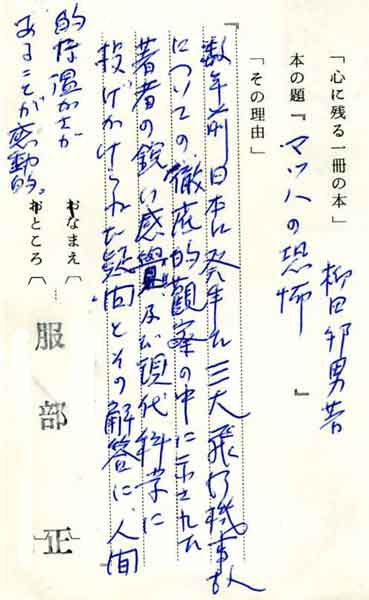 「心に残る一冊の本」
本の題『マッハの恐怖』
柳田邦男著
「その理由」
『数年前日本に発生した三大飛行機事故
についての徹底的観察の中に示された
著者の鋭い感覚及び現代科学に
投げかけられた疑問とその解答に、人間
的な温かさが
あることが感動的。
おなまえ〔
おところ〔
服部正